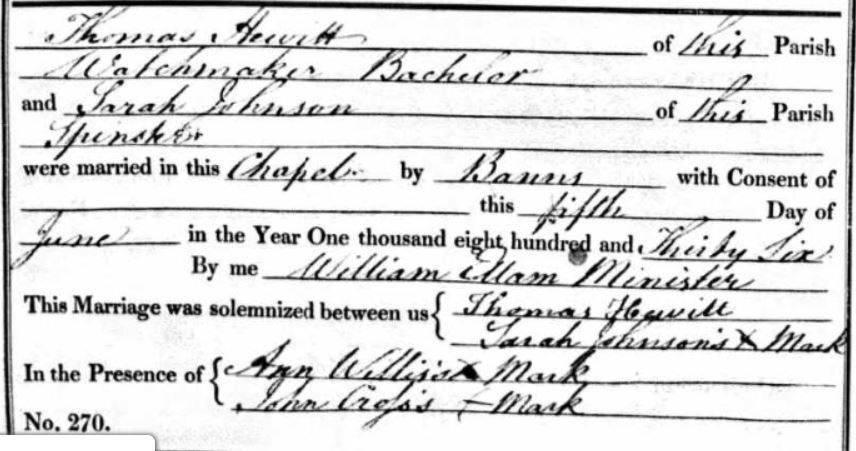 Thomas Hewitt of this Parish
Watchmaker Bachelor
and Sarah Johnson of this Parish
Spinster
were married in this Chapel by Banns with Consent of
this fifth Day of
June in the Year One thousand eight hundred and Thirty Six
By me William Ellam Minister
This Marriage was solemnized between us { Thomas Hewitt
Sarah Johnson's X Mark
In the Presence of { Ann Willis's X Mark
John Cross's X Mark
No. 270.